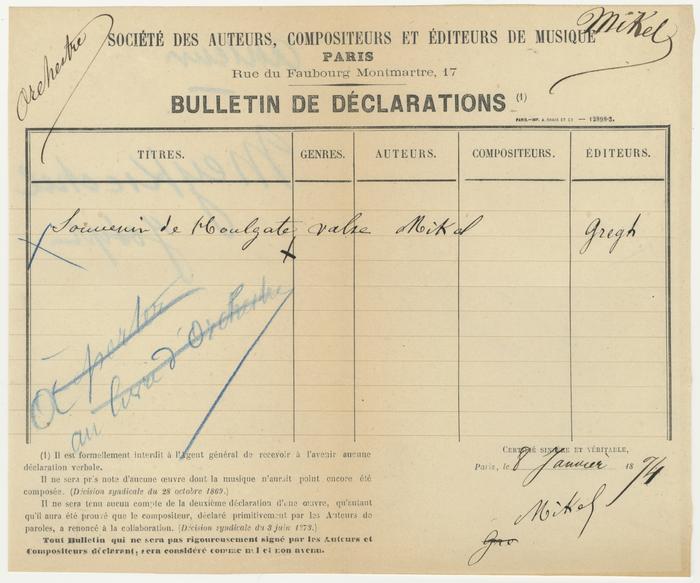 Orchestre
Mikel
SOCIÉTÉ DES AUTEURS, COMPOSITEURS ET ÉDITEURS DE MUSIQUE
PARIS
Rue du Faubourg Montmartre, 17
BULLETIN DE DÉCLARATIONS (1)
PARIS.—IMP. A. CHAIX ET Cie — 12898-3.
TITRES. GENRES. AUTEURS. COMPOSITEURS. ÉDITEURS.
Souvenir de Houlgate valse Mikel Gregh
au livre d'Orchestre
(1) Il est formellement interdit à l'Agent général de recevoir à l'avenir aucune
déclaration verbale.
Il ne sera pris note d'aucune œuvre dont la musique n'aurait point encore été
composée. (Décision syndicale du 28 octobre 1869.)
Il ne sera tenu aucun compte de la deuxième déclaration d'une œuvre, qu'autant
qu'il aura été prouvé que le compositeur, déclaré primitivement par les Auteurs de
paroles, a renoncé à la collaboration. (Décision syndicale du 3 juin 1873.)
Tout Bulletin qui ne sera pas rigoureusement signé par les Auteurs et
Compositeurs déclarant, sera considéré comme nul et non avenu.
CERTIFIÉ SINCÈRE ET VÉRITABLE,
Paris, le 8 Janvier 18
Mikel